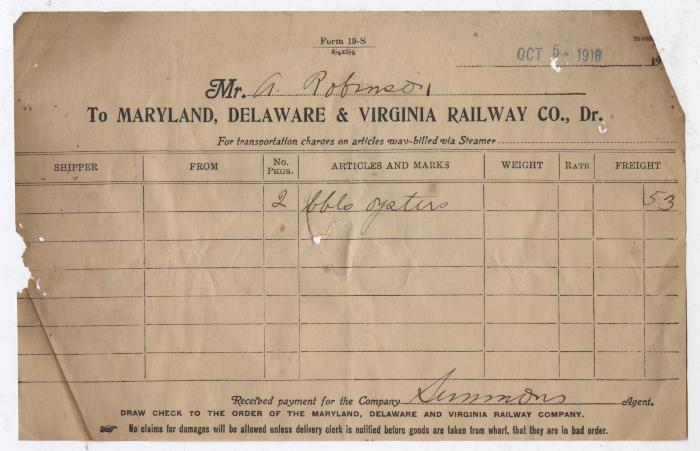 Form 19-S
OCT 5 - 1918
19
Mr. A. Robinson
To MARYLAND, DELAWARE & VIRGINIA RAILWAY CO., Dr.
For transportation charges on articles way-billed via Steamer
SHIPPER FROM No. Pkgs. ARTICLES AND MARKS WEIGHT RATE FREIGHT
2 bbls oysters 53
Received payment for the Company Simmons Agent.
DRAW CHECK TO THE ORDER OF THE MARYLAND, DELAWARE AND VIRGINIA RAILWAY COMPANY.
No claims for damages will be allowed unless delivery clerk is notified before goods are taken from wharf, that they are in bad order.